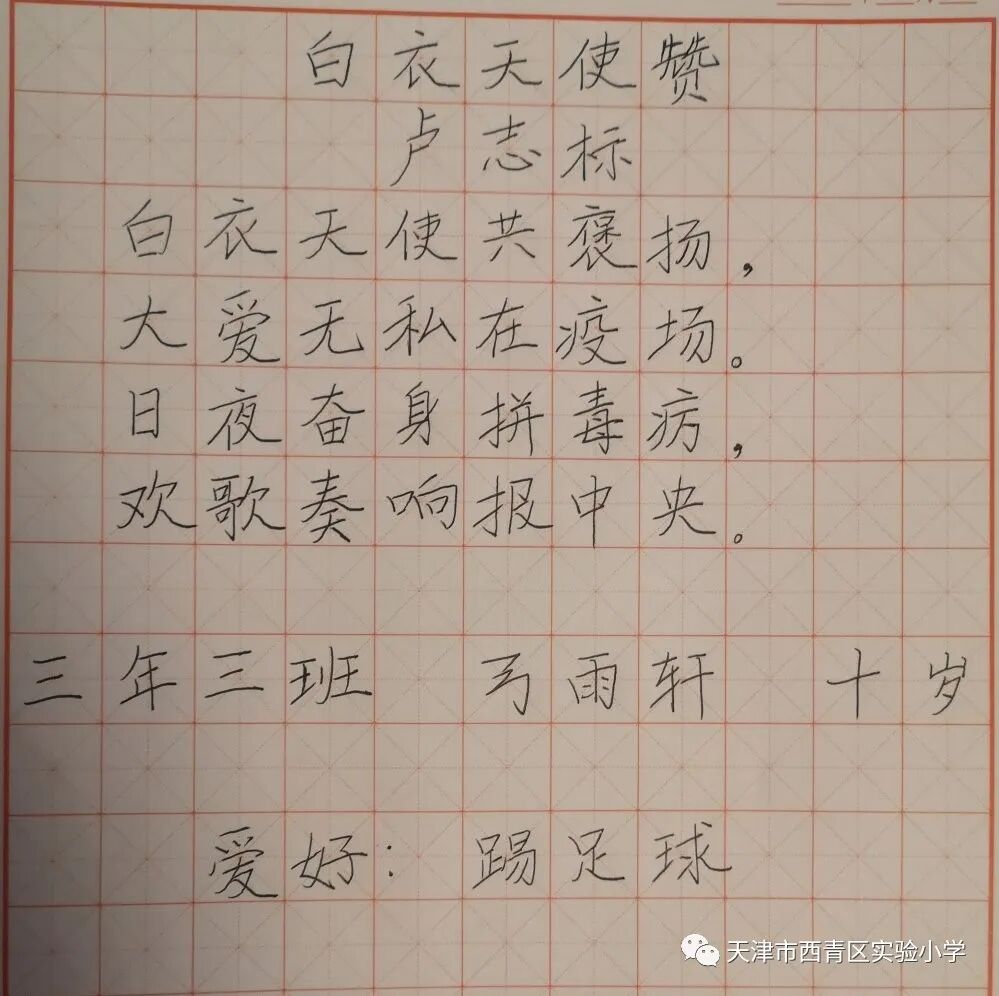 白衣天使赞
卢志标
白衣天使共褒扬,
大爱无私在疫场。
日夜奋身拼毒疠,
欢歌奏响报中央。
三年三班 弓雨轩 十岁
爱好: 踢足球
天津市西青区实验小学